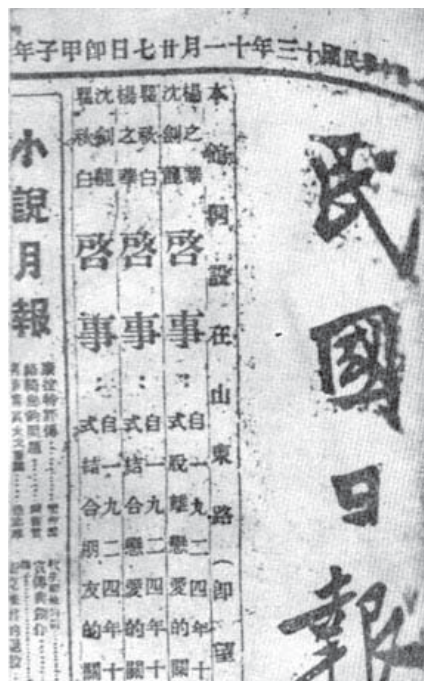 華民國十三年十一月廿七日卽甲子年
民國日報
本館開設在山東路(卽望
楊之華
沈劍龍
啓事:
自一九二四年十
式脫離戀愛的關
瞿秋白
楊之華
啓事:
自一九二四年十
式結合戀愛的關
沈劍龍
瞿秋白
啓事:
自一九二四年十
式結合朋友的關
小說月報